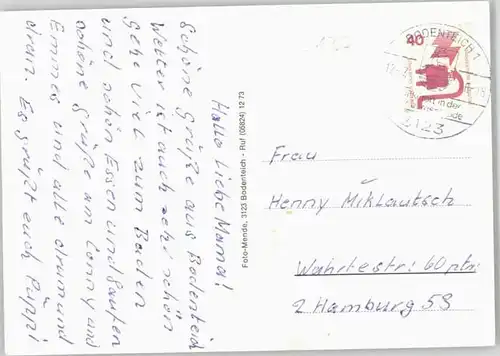 Hallo liebe Mama!
Schöne Grüße aus Bodenteich
Wetter ist auch sehr schön
Gehe viel zum Baden
und schön Essen und laufen
schöne Grüße am Conny und
Emmes und alle drum und
dran. Es grüßt euch Puppi
Foto-Mende, 3123 Bodenteich - Ruf (05824) 12 73
40
BODENTEICH 1
in der
3123
Frau
Henny Miklautsch
Wohrtestr: 60 ptr:
2 Hamburg 53